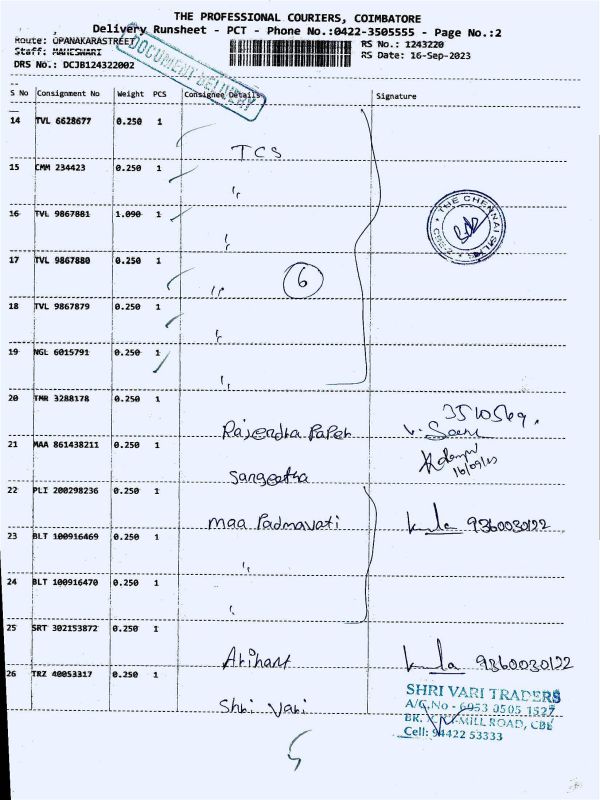 THE PROFESSIONAL COURIERS, COIMBATORE
Delivery Runsheet - PCT - Phone No.:0422-3505555 - Page No.:2
Route: OPANAKARASTREET
Staff: MAHESWARI
DRS No.: DCJB124322002
RS No.: 1243220
RS Date: 16-Sep-2023
DOCUMENT DELIVERY
S No Consignment No Weight PCS Consignee Details Signature
14 TVL 6628677 0.250 1
TCS
15 CMM 234423 0.250 1
"
16 TVL 9867881 1.090 1
"
THE CHENNAI SILKS
CBE-2
17 TVL 9867880 0.250 1
"
6
18 TVL 9867879 0.250 1
"
19 NGL 6015791 0.250 1
"
20 TMR 3288178 0.250 1
Rajendra Paper
3510569.
21 MAA 861438211 0.250 1
Sangeetha
16/09/23
22 PLI 200298236 0.250 1
Maa Padmavati 9360030122
23 BLT 100916469 0.250 1
"
24 BLT 100916470 0.250 1
"
25 SRT 302153872 0.250 1
Arihant 9360030122
26 TRZ 40053317 0.250 1
Shri Vari
SHRI VARI TRADERS
A/C.No - 6953 0505 1527
MILL ROAD, CBE
Cell: 94422 53333